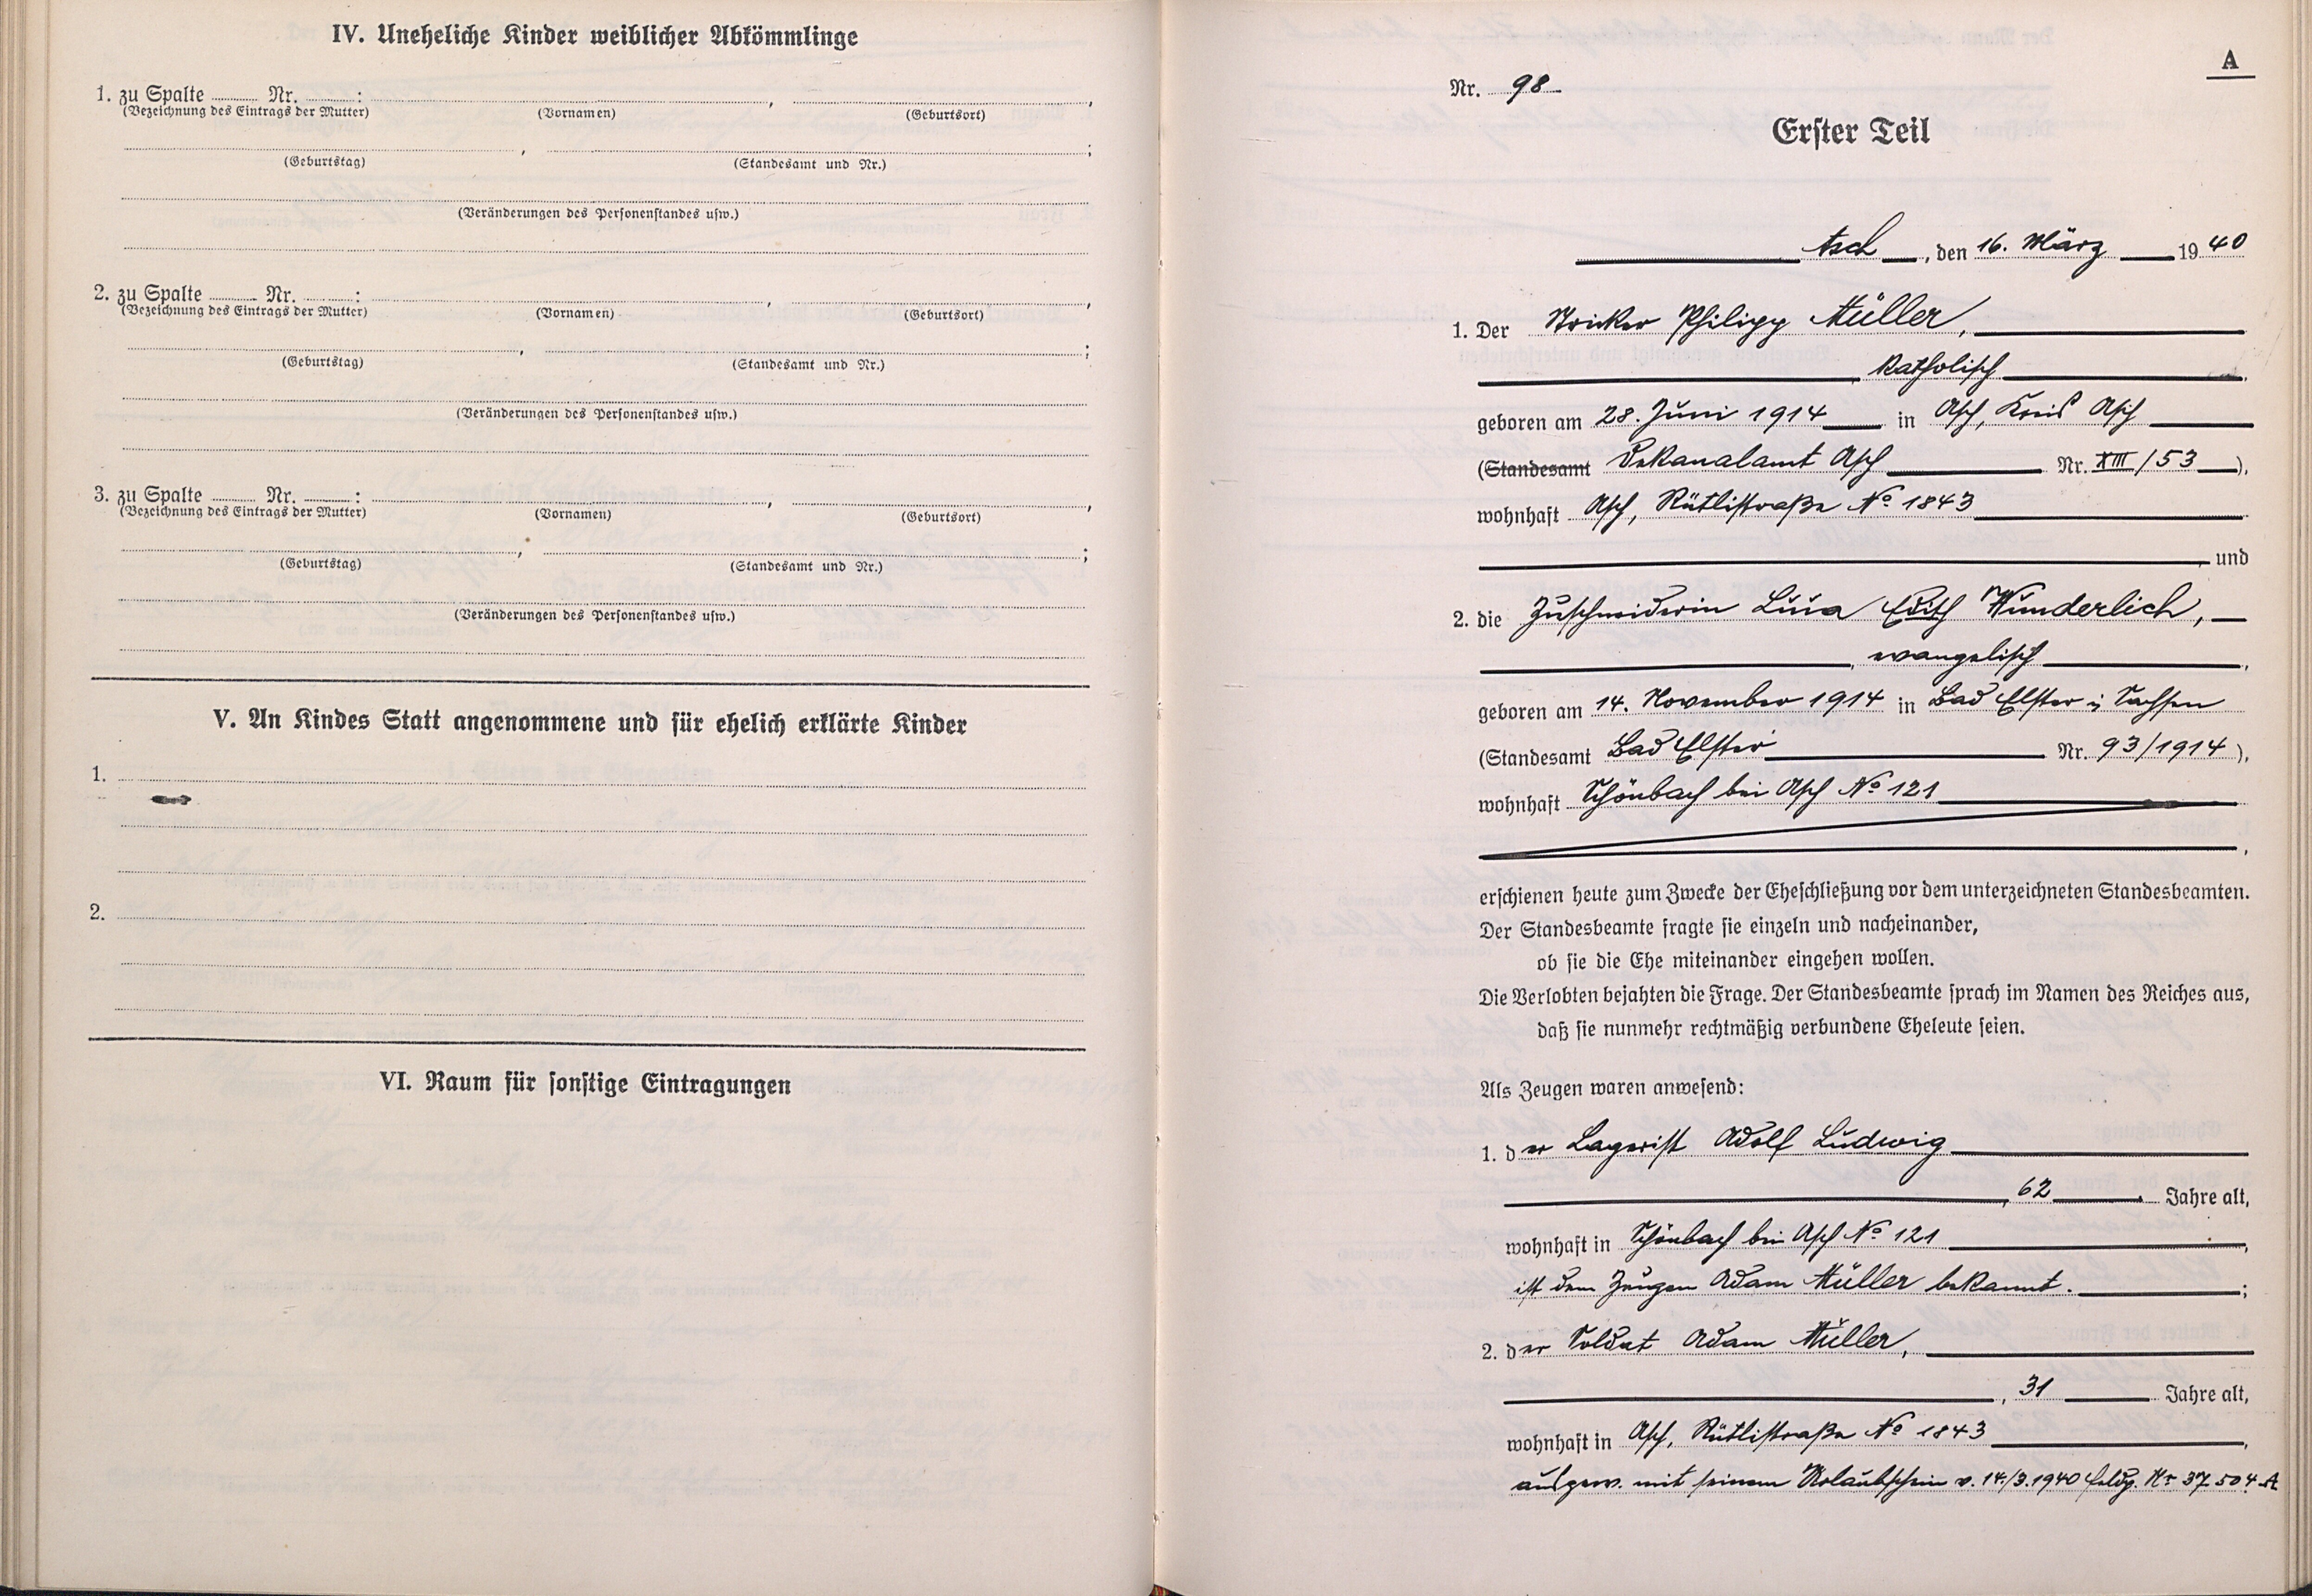 IV. Uneheliche Kinder weiblicher Abkömmlinge
1. zu Spalte Nr. : , ,
(Bezeichnung des Eintrags der Mutter) (Vornamen) (Geburtsort)
, ;
(Geburtstag) (Standesamt und Nr.)
(Veränderungen des Personenstandes usw.)
2. zu Spalte Nr. : , ,
(Bezeichnung des Eintrags der Mutter) (Vornamen) (Geburtsort)
, ;
(Geburtstag) (Standesamt und Nr.)
(Veränderungen des Personenstandes usw.)
3. zu Spalte Nr. : , ,
(Bezeichnung des Eintrags der Mutter) (Vornamen) (Geburtsort)
, ;
(Geburtstag) (Standesamt und Nr.)
(Veränderungen des Personenstandes usw.)
V. An Kindes Statt angenommene und für ehelich erklärte Kinder
1.
2.
VI. Raum für sonstige Eintragungen
A
Nr. 98
Erster Teil
Asch, den 16. März 1940
1. Der Stricker Philipp Müller,
katholisch,
geboren am 28. Juni 1914 in Asch, Kreis Asch
(Standesamt Dekanalamt Asch Nr. XIII/53),
wohnhaft Asch, Rütlistraße No 1843
, und
2. die Zuschneiderin Lina Edith Wunderlich,
, evangelisch,
geboren am 14. November 1914 in Bad Elster i Sachsen
(Standesamt Bad Elster Nr. 93/1914),
wohnhaft Schönbach bei Asch No 121
,
erschienen heute zum Zwecke der Eheschließung vor dem unterzeichneten Standesbeamten.
Der Standesbeamte fragte sie einzeln und nacheinander,
ob sie die Ehe miteinander eingehen wollen.
Die Verlobten bejahten die Frage. Der Standesbeamte sprach im Namen des Reiches aus,
daß sie nunmehr rechtmäßig verbundene Eheleute seien.
Als Zeugen waren anwesend:
1. der Lagerist Adolf Ludwig
, 62 Jahre alt,
wohnhaft in Schönbach bei Asch No 121,
ist dem Zeugen Adam Müller bekannt. ;
2. der Soldat Adam Müller,
, 31 Jahre alt,
wohnhaft in Asch, Rütlistraße No 1843,
ausgew. mit seinem Urlaubschein v. 14./3.1940 Feldp. Nr 37504 A